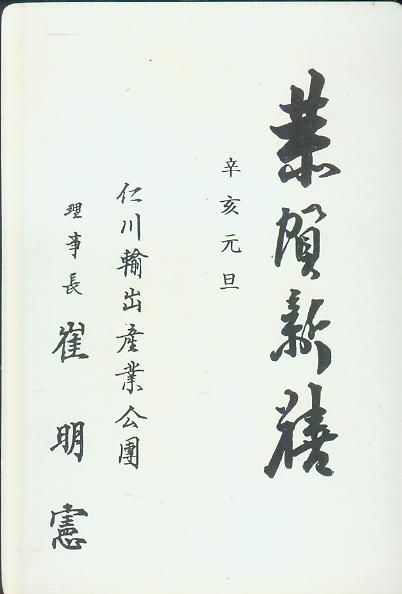 恭賀新禧
辛亥元旦
仁川輸出産業公團
理事長 崔明憲